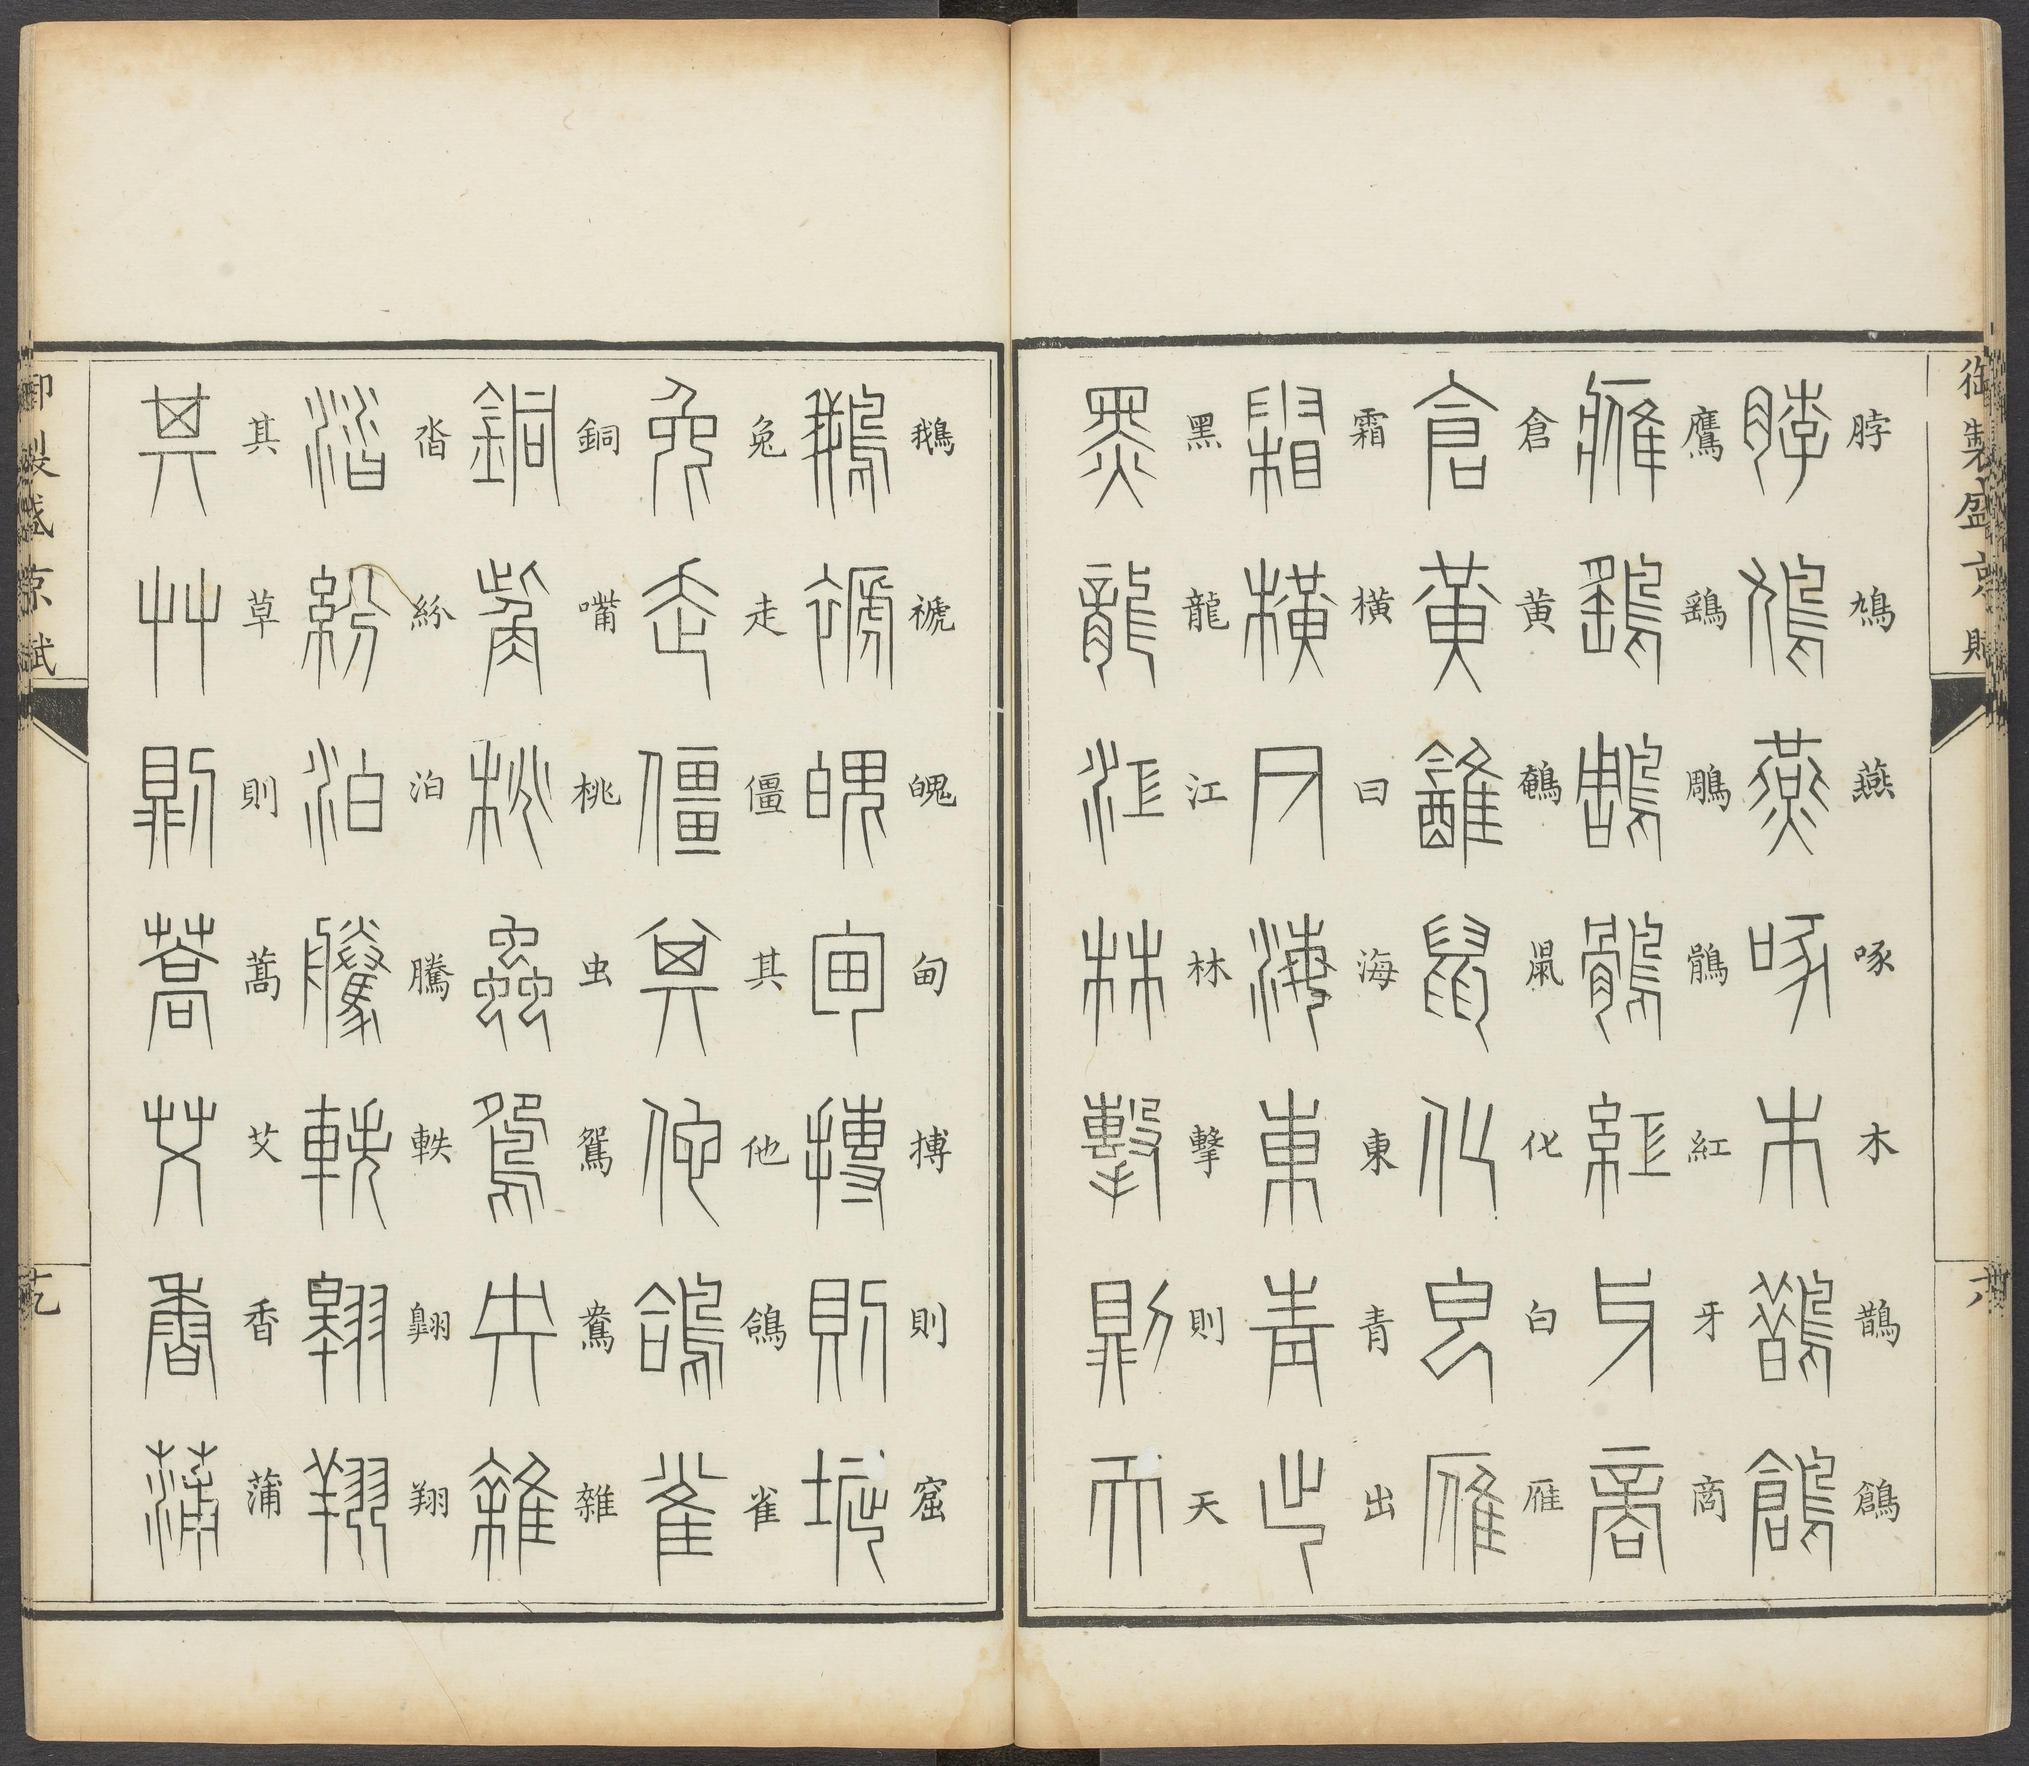 御製盛京賦
脖鳩燕啄木鵲鶬
鷹鷂鵰鶻紅牙商
倉黃鵪鼠化白雁
霜橫曰海東青出
黑龍江林擊則天
鵝褫魄甸搏則窟
兔走僵其他鴿雀
銅嘴桃虫鴛鴦雜
沓紛泊騰軼翱翔
其草則蒿艾香蒲
御製盛京賦